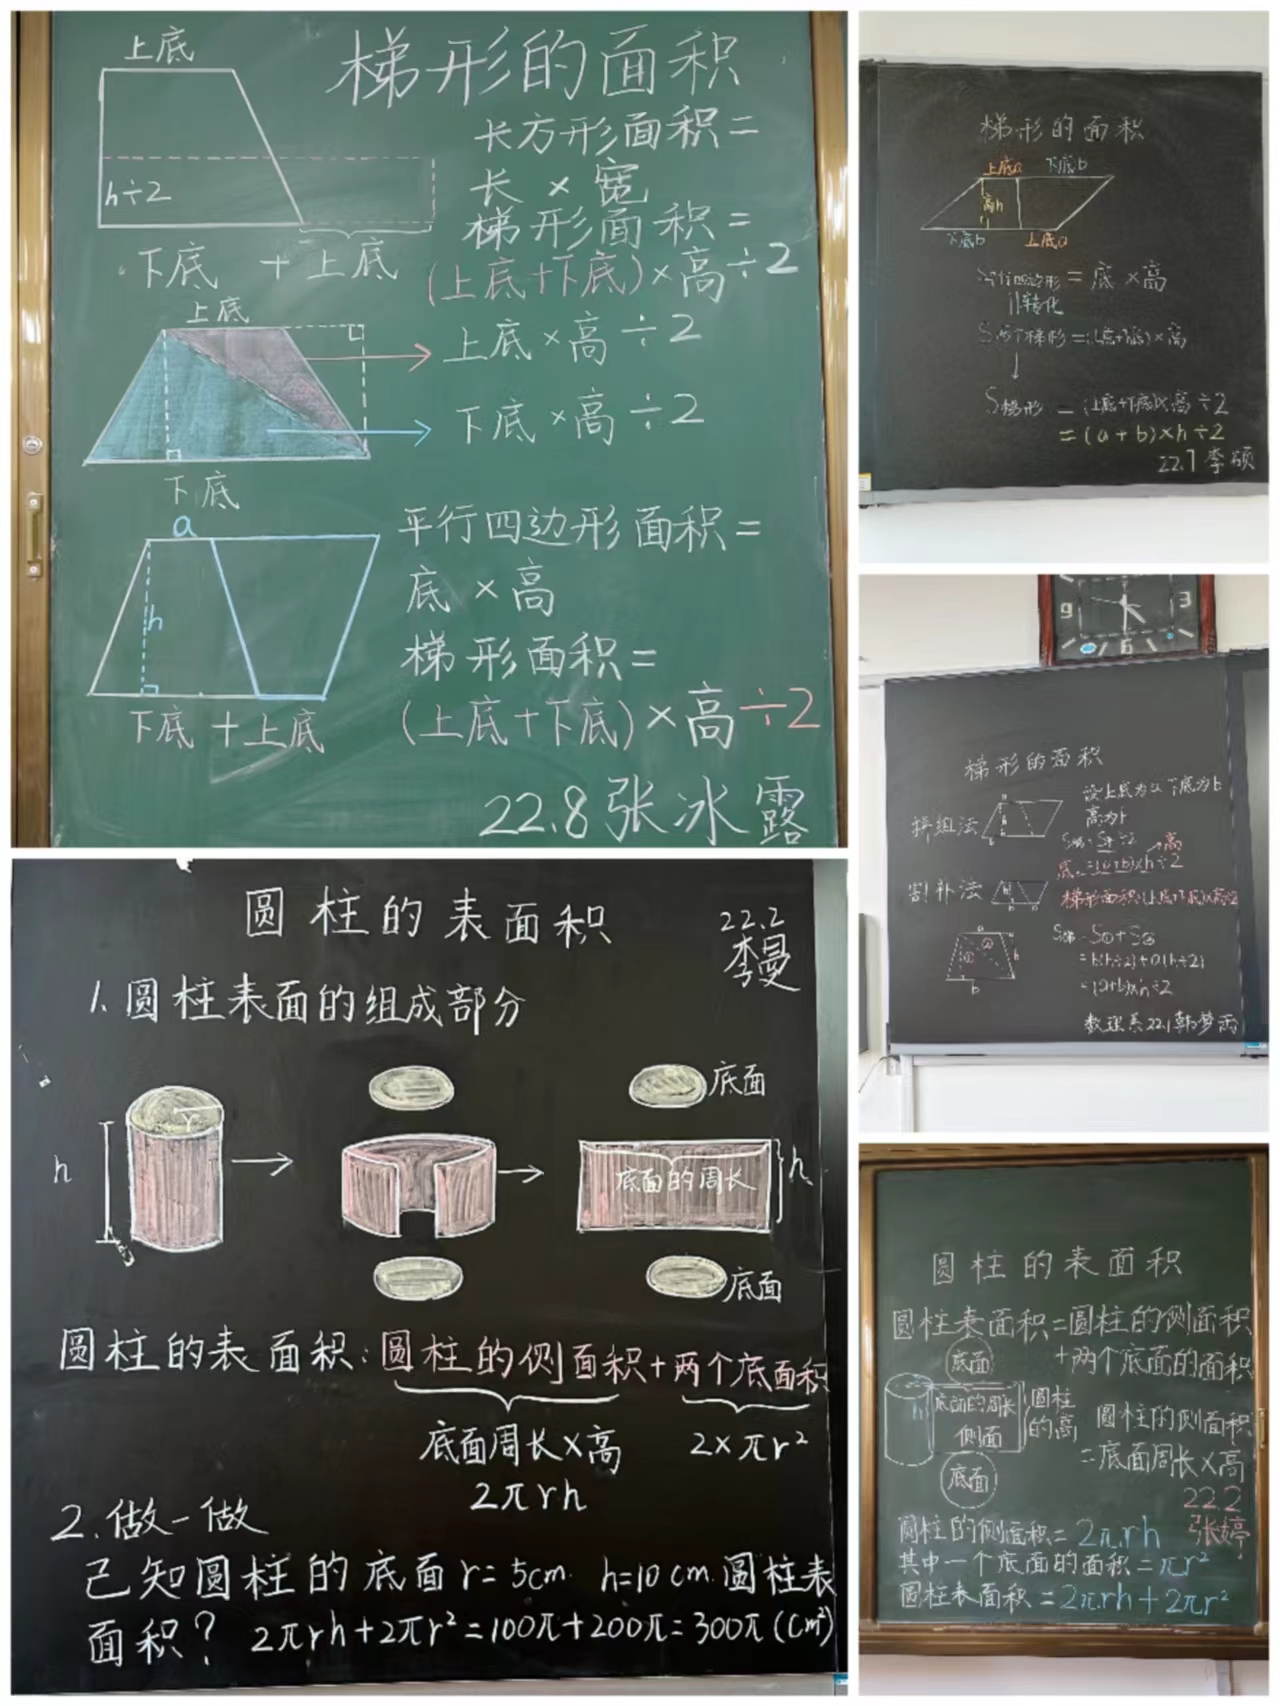 梯形的面积
上底
长方形面积=
长×宽
h÷2
梯形面积=
下底+上底
(上底+下底)×高÷2
上底
上底×高÷2
下底×高÷2
下底
a
平行四边形面积=
底×高
h
梯形面积=
下底+上底
(上底+下底)×高÷2
22.8张冰露
梯形的面积
上底a 下底b
高h
下底b 上底a
S平行四边形=底×高
转化
S两个梯形=(上底+下底)×高
S梯形=(上底+下底)×高÷2
=(a+b)×h÷2
22.1李硕
9 3
6
梯形的面积
设上底为a下底为b
高为h
拼组法
高
底=(a+b)×h÷2
割补法
梯形面积:(上底+下底)×高÷2
a
① ②
h
b
=b(h÷2)+a(h÷2)
=(a+b)×h÷2
数理系22.1韩梦雨
圆柱的表面积
22.2
李曼
1.圆柱表面的组成部分
底面
r
h
底面的周长
h
底面
圆柱的表面积:圆柱的侧面积+两个底面积
底面周长×高 2×πr²
2πrh
2.做一做
已知圆柱的底面r=5cm.h=10cm.圆柱表
面积?2πrh+2πr²=100π+200π=300π(cm²)
圆柱的表面积
圆柱表面积=圆柱的侧面积
+两个底面的面积
底面
h
底面的周长
侧面
圆柱的高
圆柱的侧面积
=底面周长×高
底面
22.2
张婷
圆柱的侧面积=2πrh
其中一个底面的面积=πr²
圆柱表面积=2πrh+2πr²